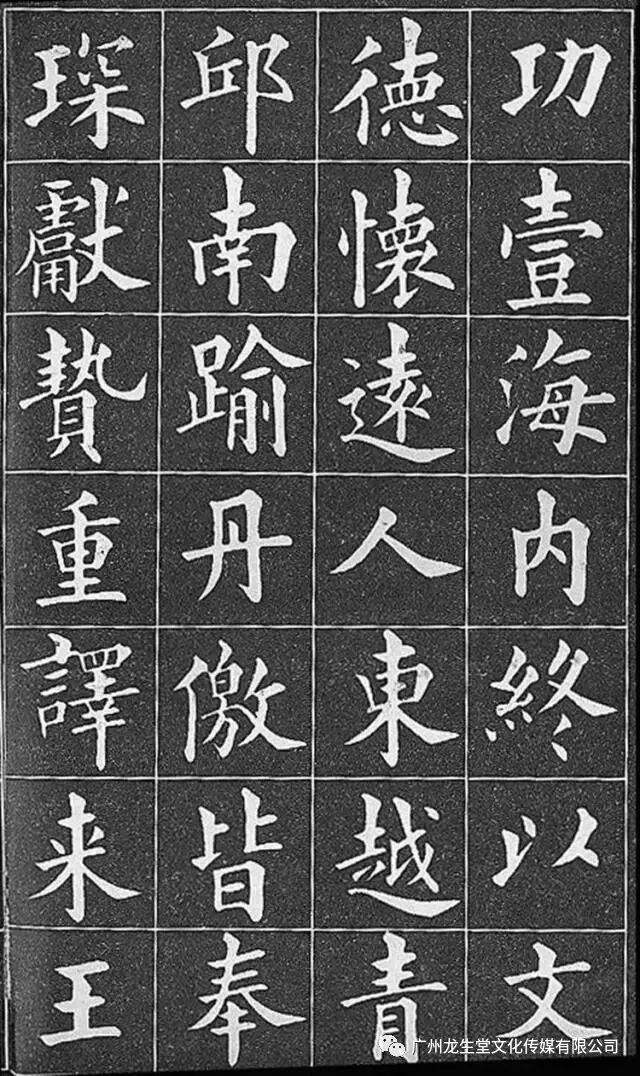 功壹海内終以文
德懷遠人東越青
邱南踰丹儌皆奉
琛獻贄重譯来王
广州龙生堂文化传媒有限公司